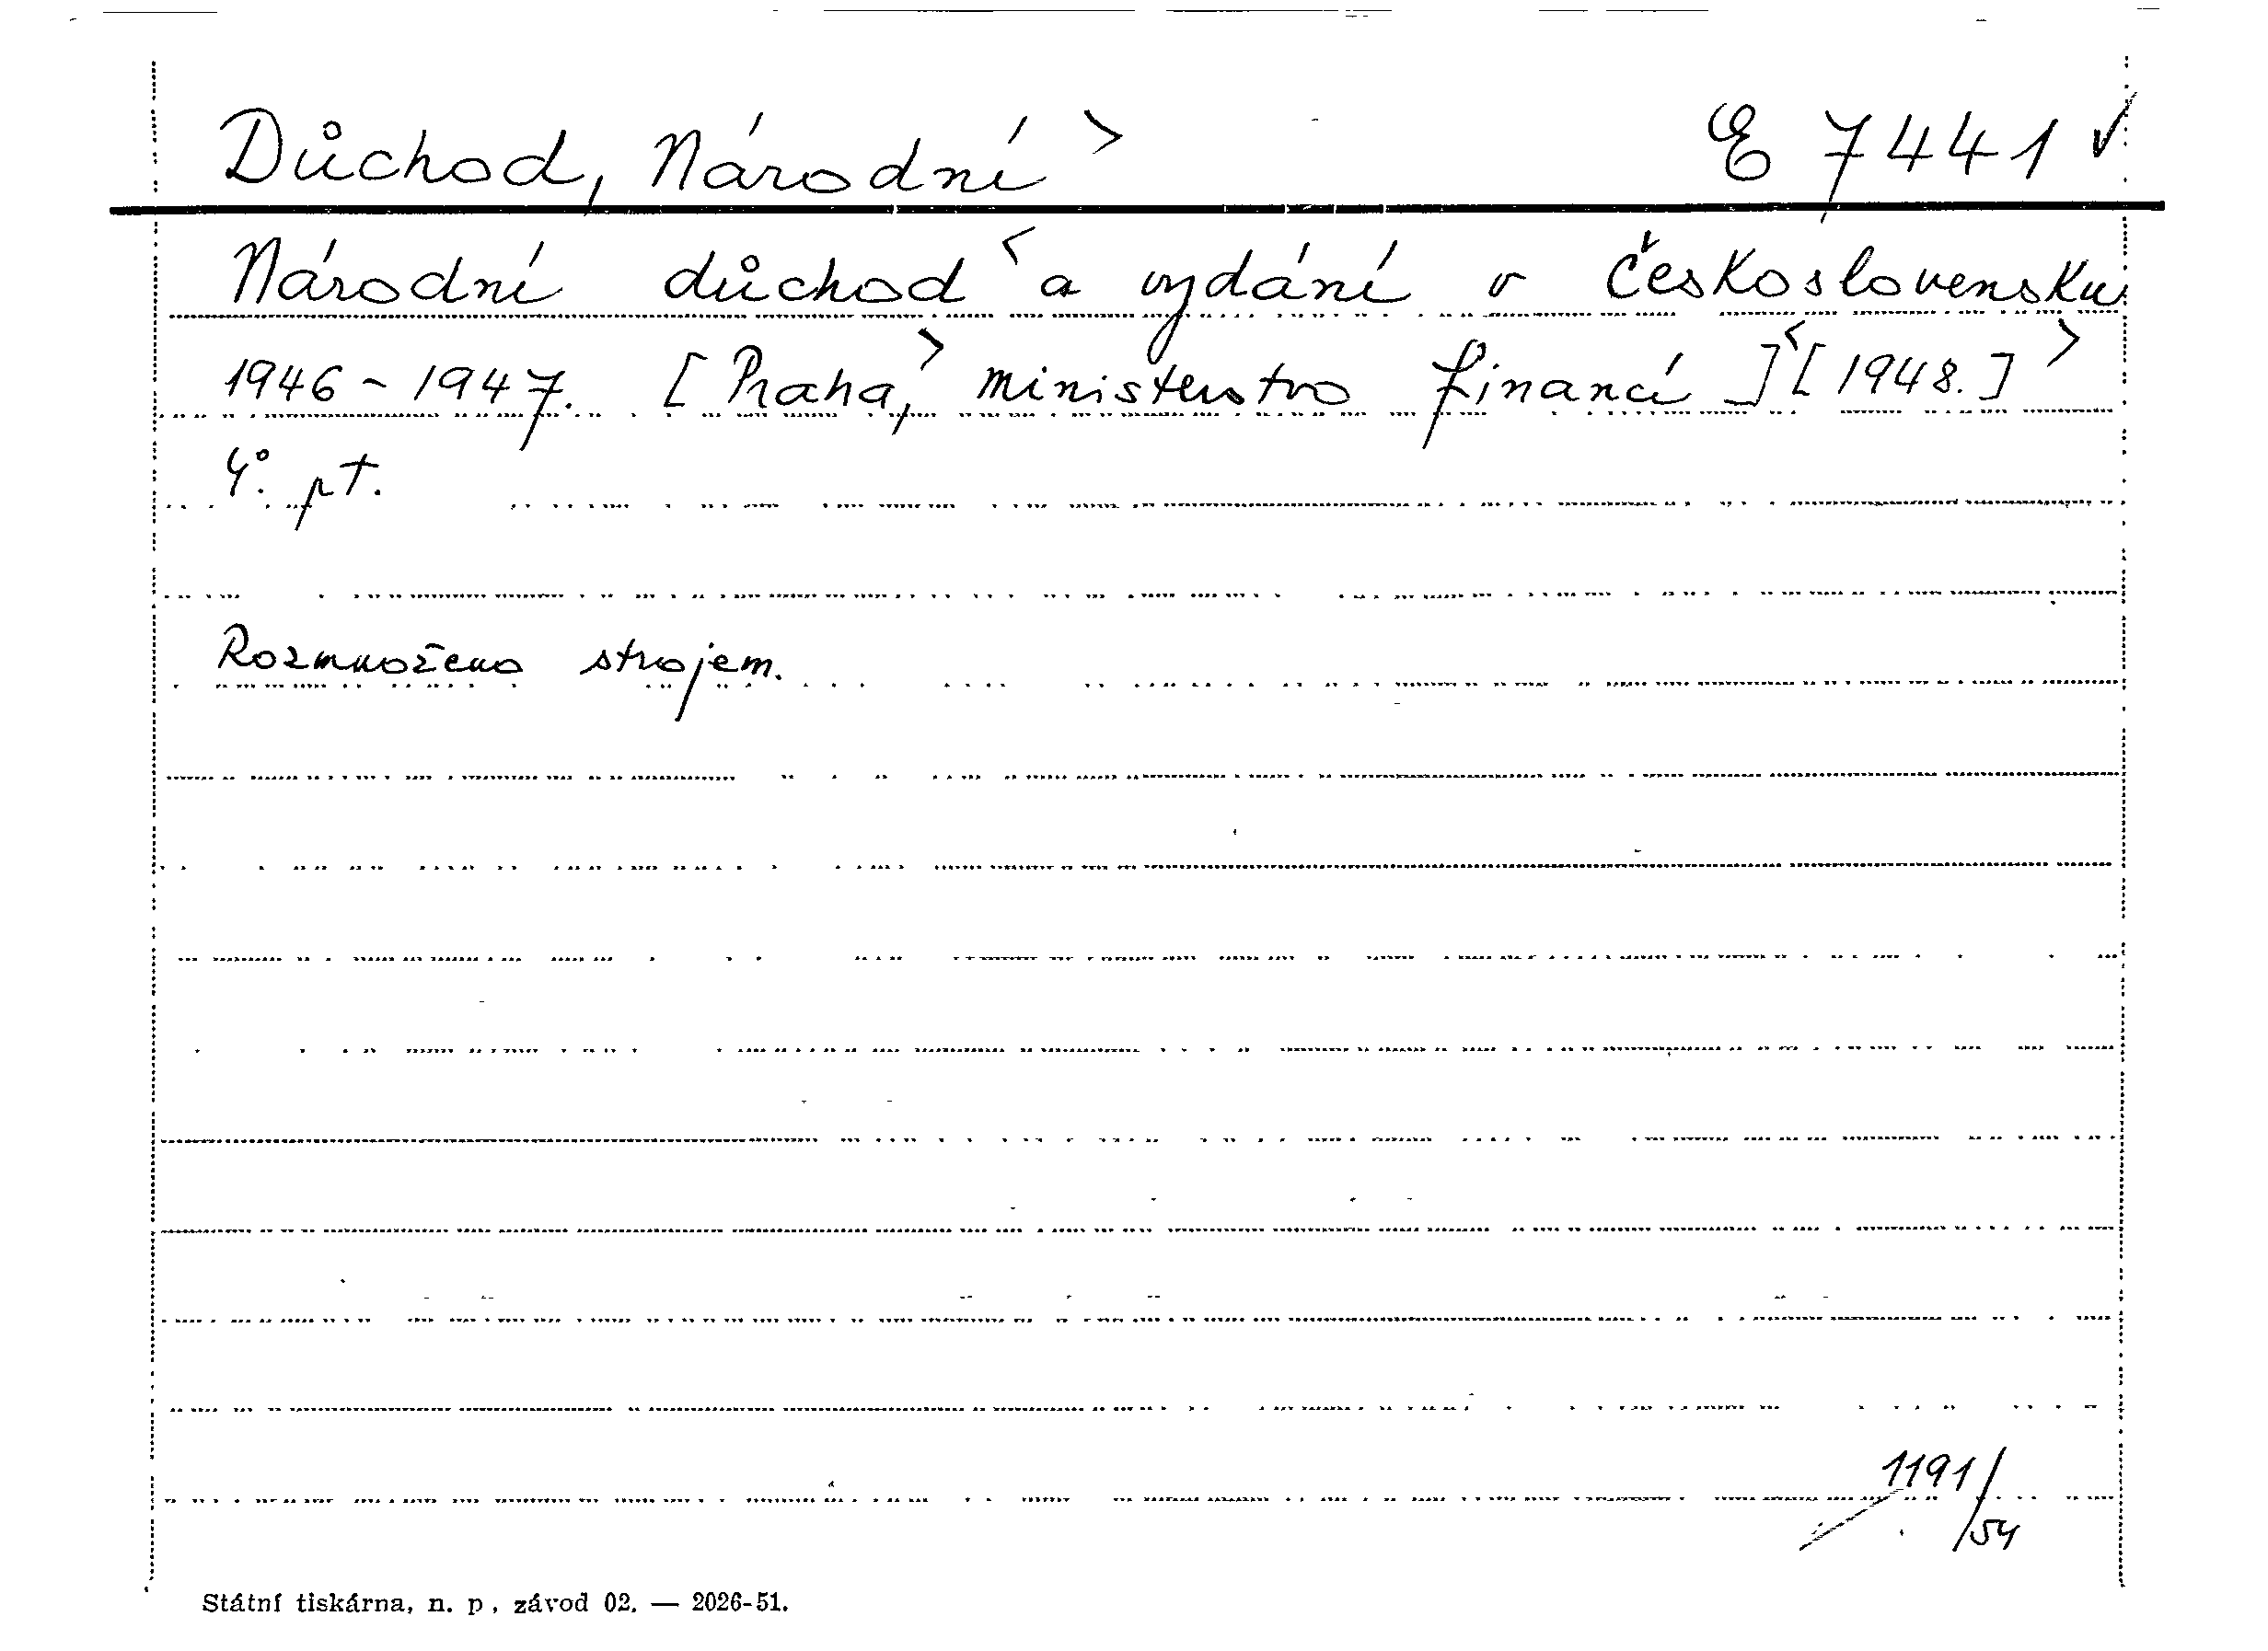 Důchod, Národní > E 7441 ✓
Národní důchod < a vydání v Československu
1946 - 1947. [Praha, > ministerstvo financí ] < [1948.] >
4°. pt.
Rozmnoženo strojem.
1191/54
Státní tiskárna, n. p., závod 02. — 2026-51.